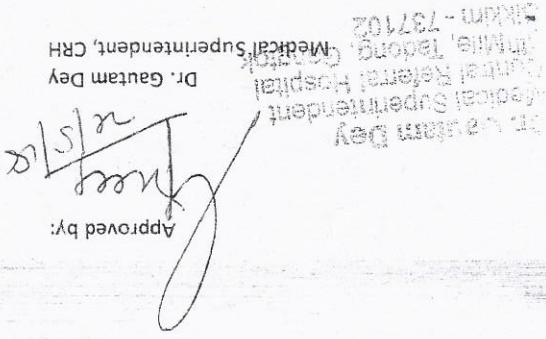 Approved by:
Dr. Gautam Dey
Medical Superintendent, CRH
Dr. Gautam Dey
Medical Superintendent
Central Referral Hospital
Tadong, Gangtok
Sikkim - 737102